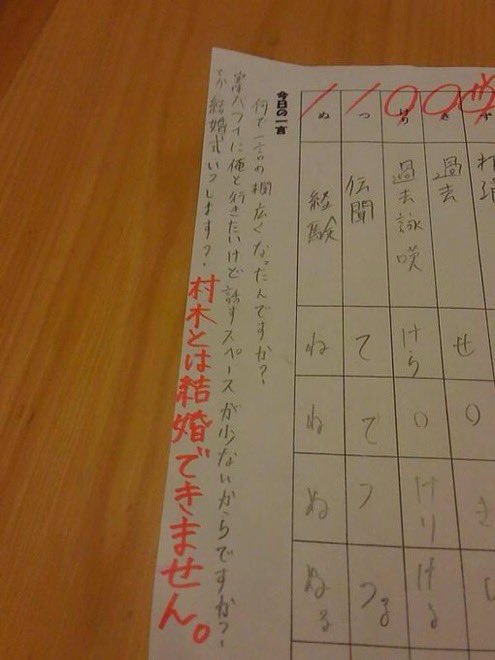 き 過去 せ ○ き
けり 過去詠嘆 けら ○ けり ける
つ 伝聞 て て つ つる
ぬ 経験 ね ね ぬ ぬる
今日の一言
何で一言の欄広くなったんですか?
に俺と行きたいけど話すスペースが少ないからですか?
てか結婚式いつします?
村木とは結婚できません。